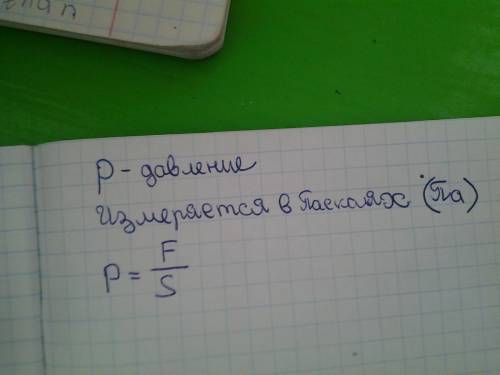 p - давление
измеряется в Паскалях (Па)
p = F/S